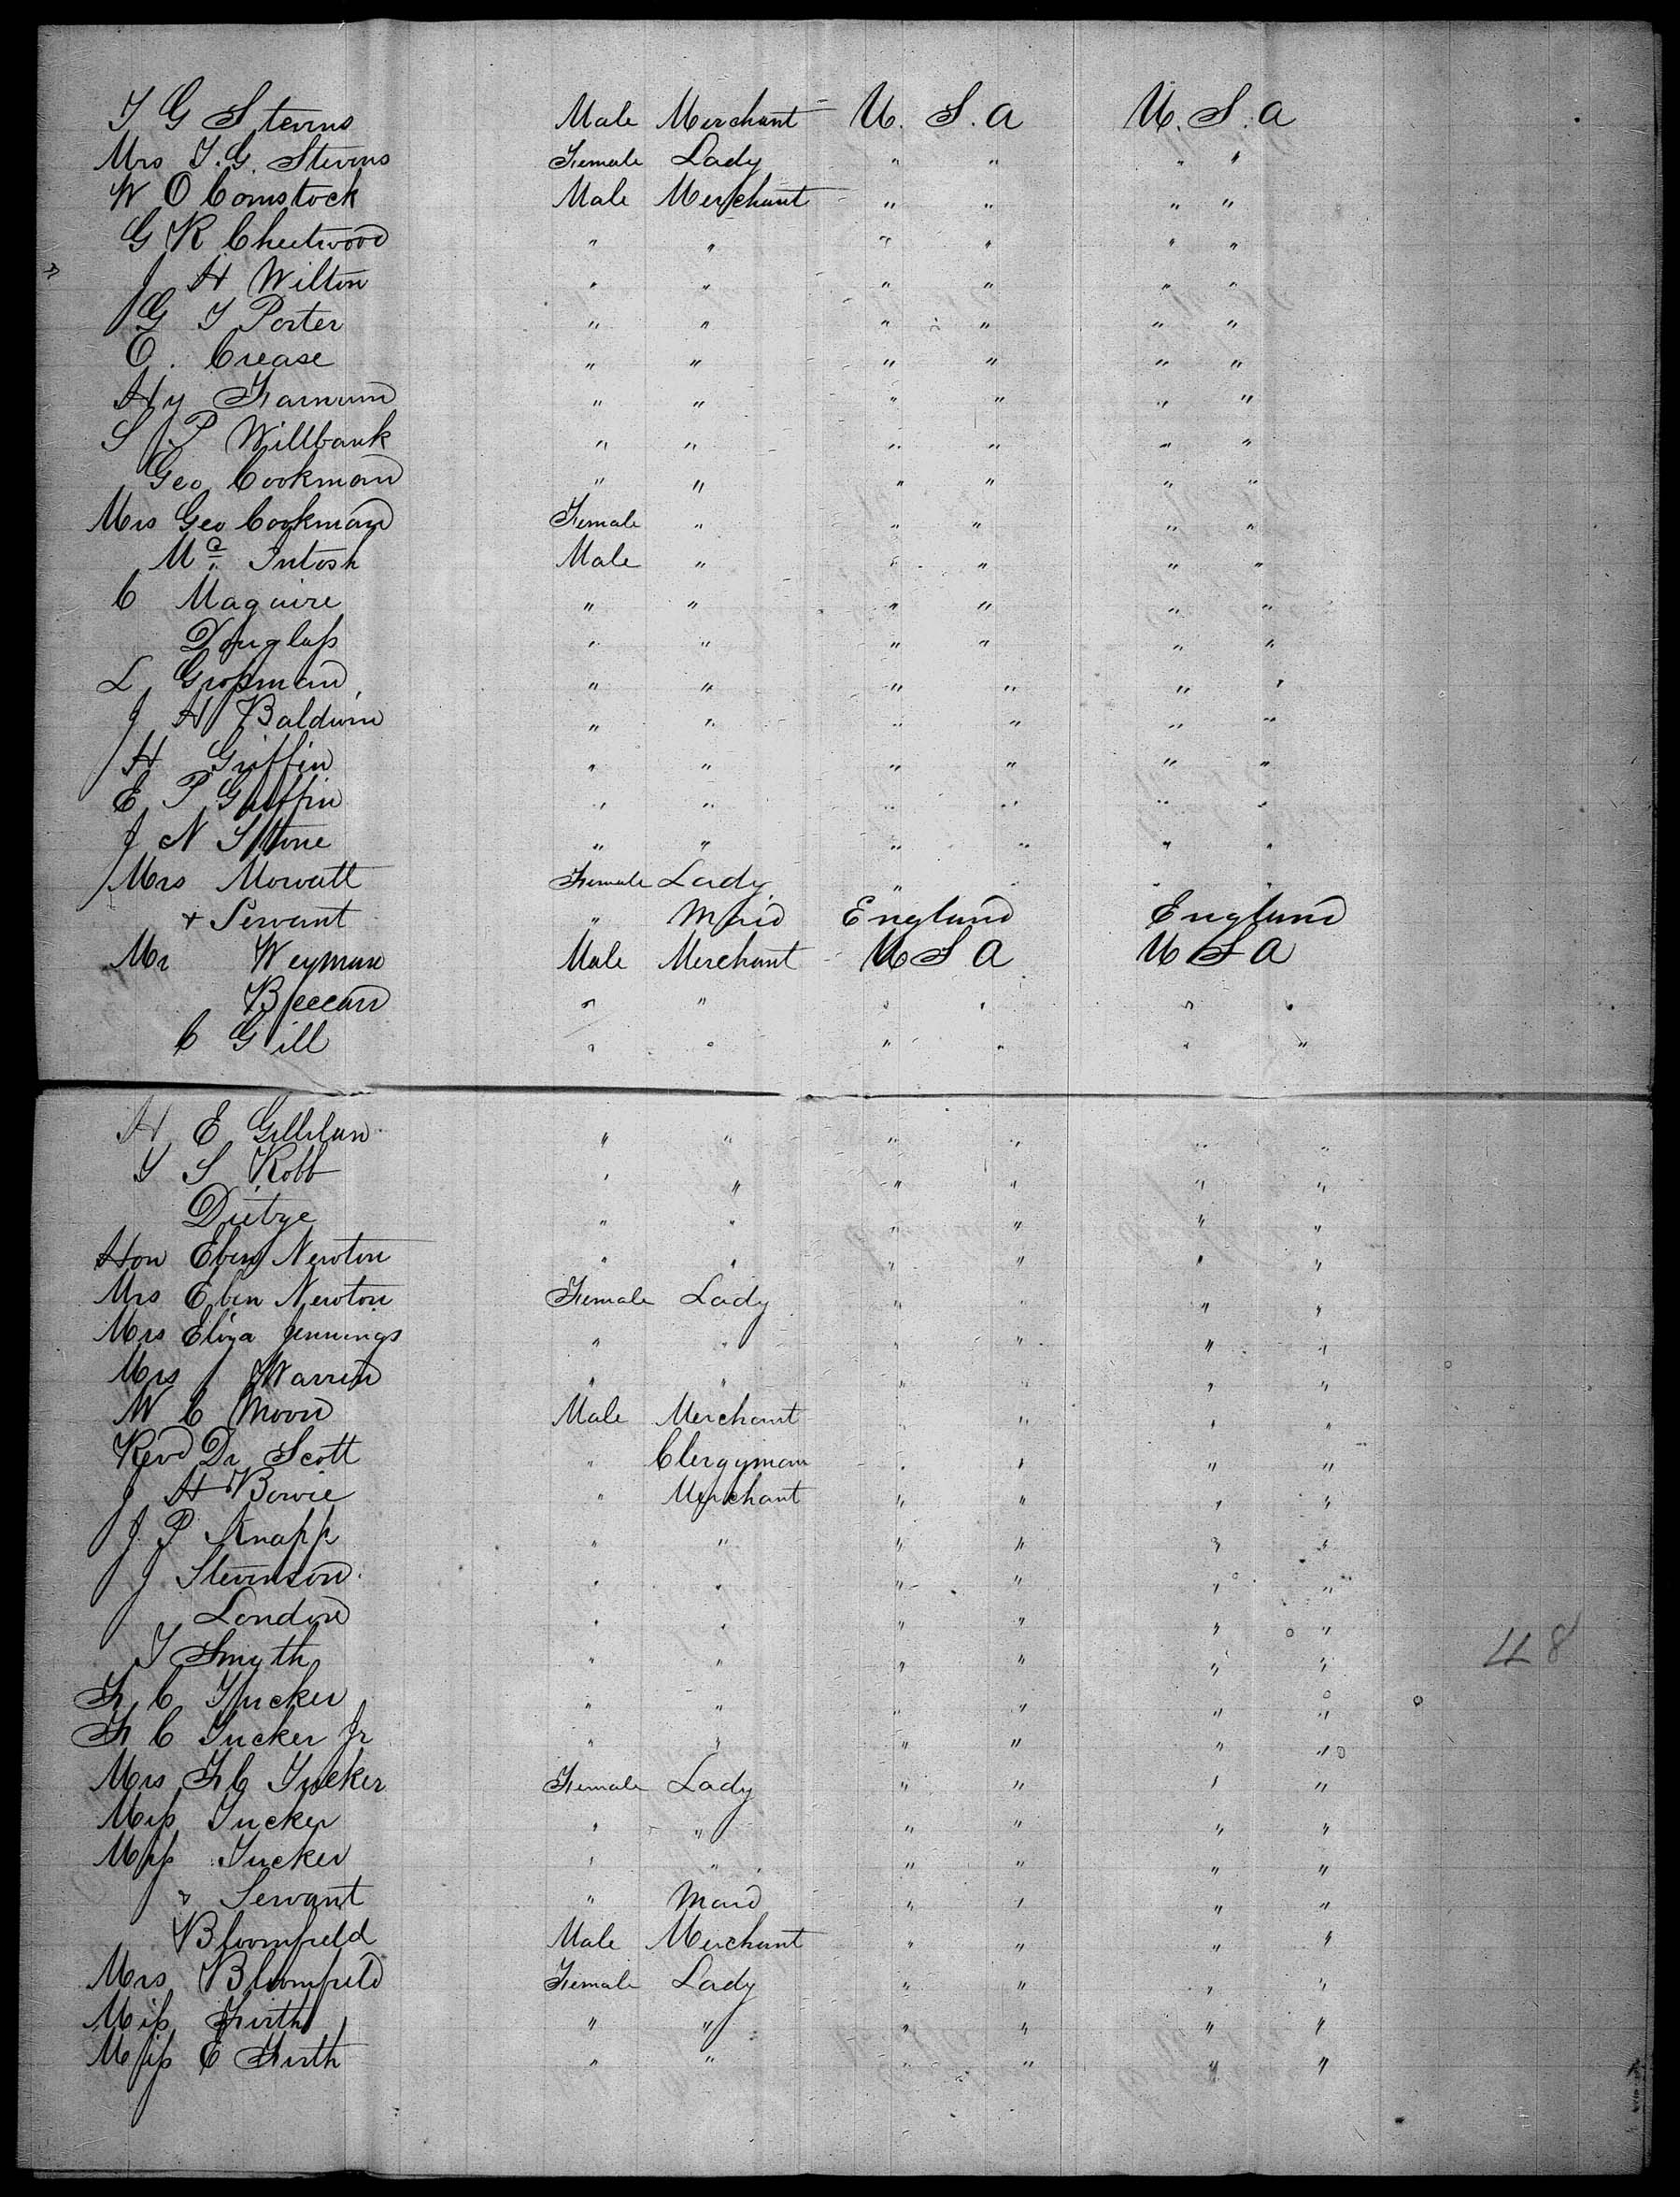 T G Stevens Male Merchant U. S. A U. S. A
Mrs T. G. Stevens Female Lady " " " "
W O Comstock Male Merchant " " " "
G K Chetwood " " " " " "
J H Wilton " " " " " "
G T Porter " " " " " "
O. Crease " " " " " "
Hy Farnum " " " " " "
S P Willbank " " " " " "
Geo Cookman " " " " " "
Mrs Geo Cookman Female " " " " "
Mc Intosh Male " " " " "
C Maguire " " " " " "
Douglass " " " " " "
L Grossman " " " " " "
J H Baldwin " " " " " "
H Griffin " " " " " "
E P Griffin " " " " " "
J N Stone " " " " " "
Mrs Mowatt Female Lady " " " "
+ Servant " Maid England England
Mr Weyman Male Merchant U S A U S A
" " " " " "
C Gill " " " " " "
H E Gillilan " " " " " "
T S Robb " " " " " "
Dietze " " " " " "
Hon Eben Newton " " " " " "
Mrs Eben Newton Female Lady " " " "
Mrs Eliza Jennings " " " " " "
Mrs Warren " " " " " "
W C Moon Male Merchant " " " "
Revd Dr Scott " Clergyman " " " "
J H Bowie " Merchant " " " "
J. P Knapp " " " " " "
J Stevenson " " " " " "
London " " " " " "
T Smyth " " " " " "
F C Tucker " " " " " "
F C Tucker Jr " " " " " "
Mrs F C Tucker Female Lady " " " "
Miss Tucker " " " " " "
Miss Tucker " " " " " "
" Servant " Maid " " " "
Bloomfield Male Merchant " " " "
Mrs Bloomfield Female Lady " " " "
Miss Firth " " " " " "
Miss E Firth " " " " " "
48